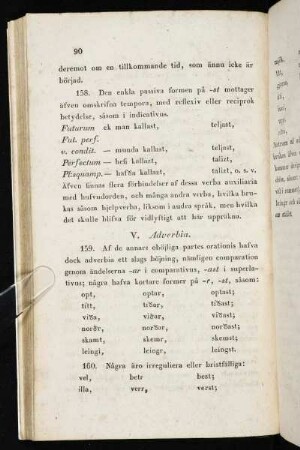 90
deremot om en tillkommande tid, som ännu icke är
börjad.
158. Den enkla passiva formen på -st mottager
äfven omskrifna tempora, med reflexiv eller reciprok
betydelse, såsom i indicativus.
Futurum ek man kallast, teljast,
Fut. perf.
v. condit. — munda kallast, teljast,
Perfectum — hefi kallast, talizt,
Plusquamp. — hafða kallast, talizt, o. s. v.
äfven finnas flera förbindelser af dessa verba auxiliaria
med hufvudorden, och många andra verba, hvilka bru-
kas såsom hjelpverba, liksom i andra språk, men hvilka
det skulle blifva för vidlyftigt att här uppräkna.
V. Adverbia.
159. Af de annars oböjliga partes orationis hafva
dock adverbia ett slags böjning, nämligen comparation
genom ändelserna -ar i comparativus, -ast i superla-
tivus; några hafva kortare former på -r, -st, såsom:
opt, optar, optast;
títt, tíðar, tíðast;
víða, víðar, víðast;
norðr, norðar, norðast;
skamt, skemr, skemst;
leingi, leingr, leingst.
160. Några äro irreguliera eller bristfälliga:
vel, betr best;
illa, verr, verst;